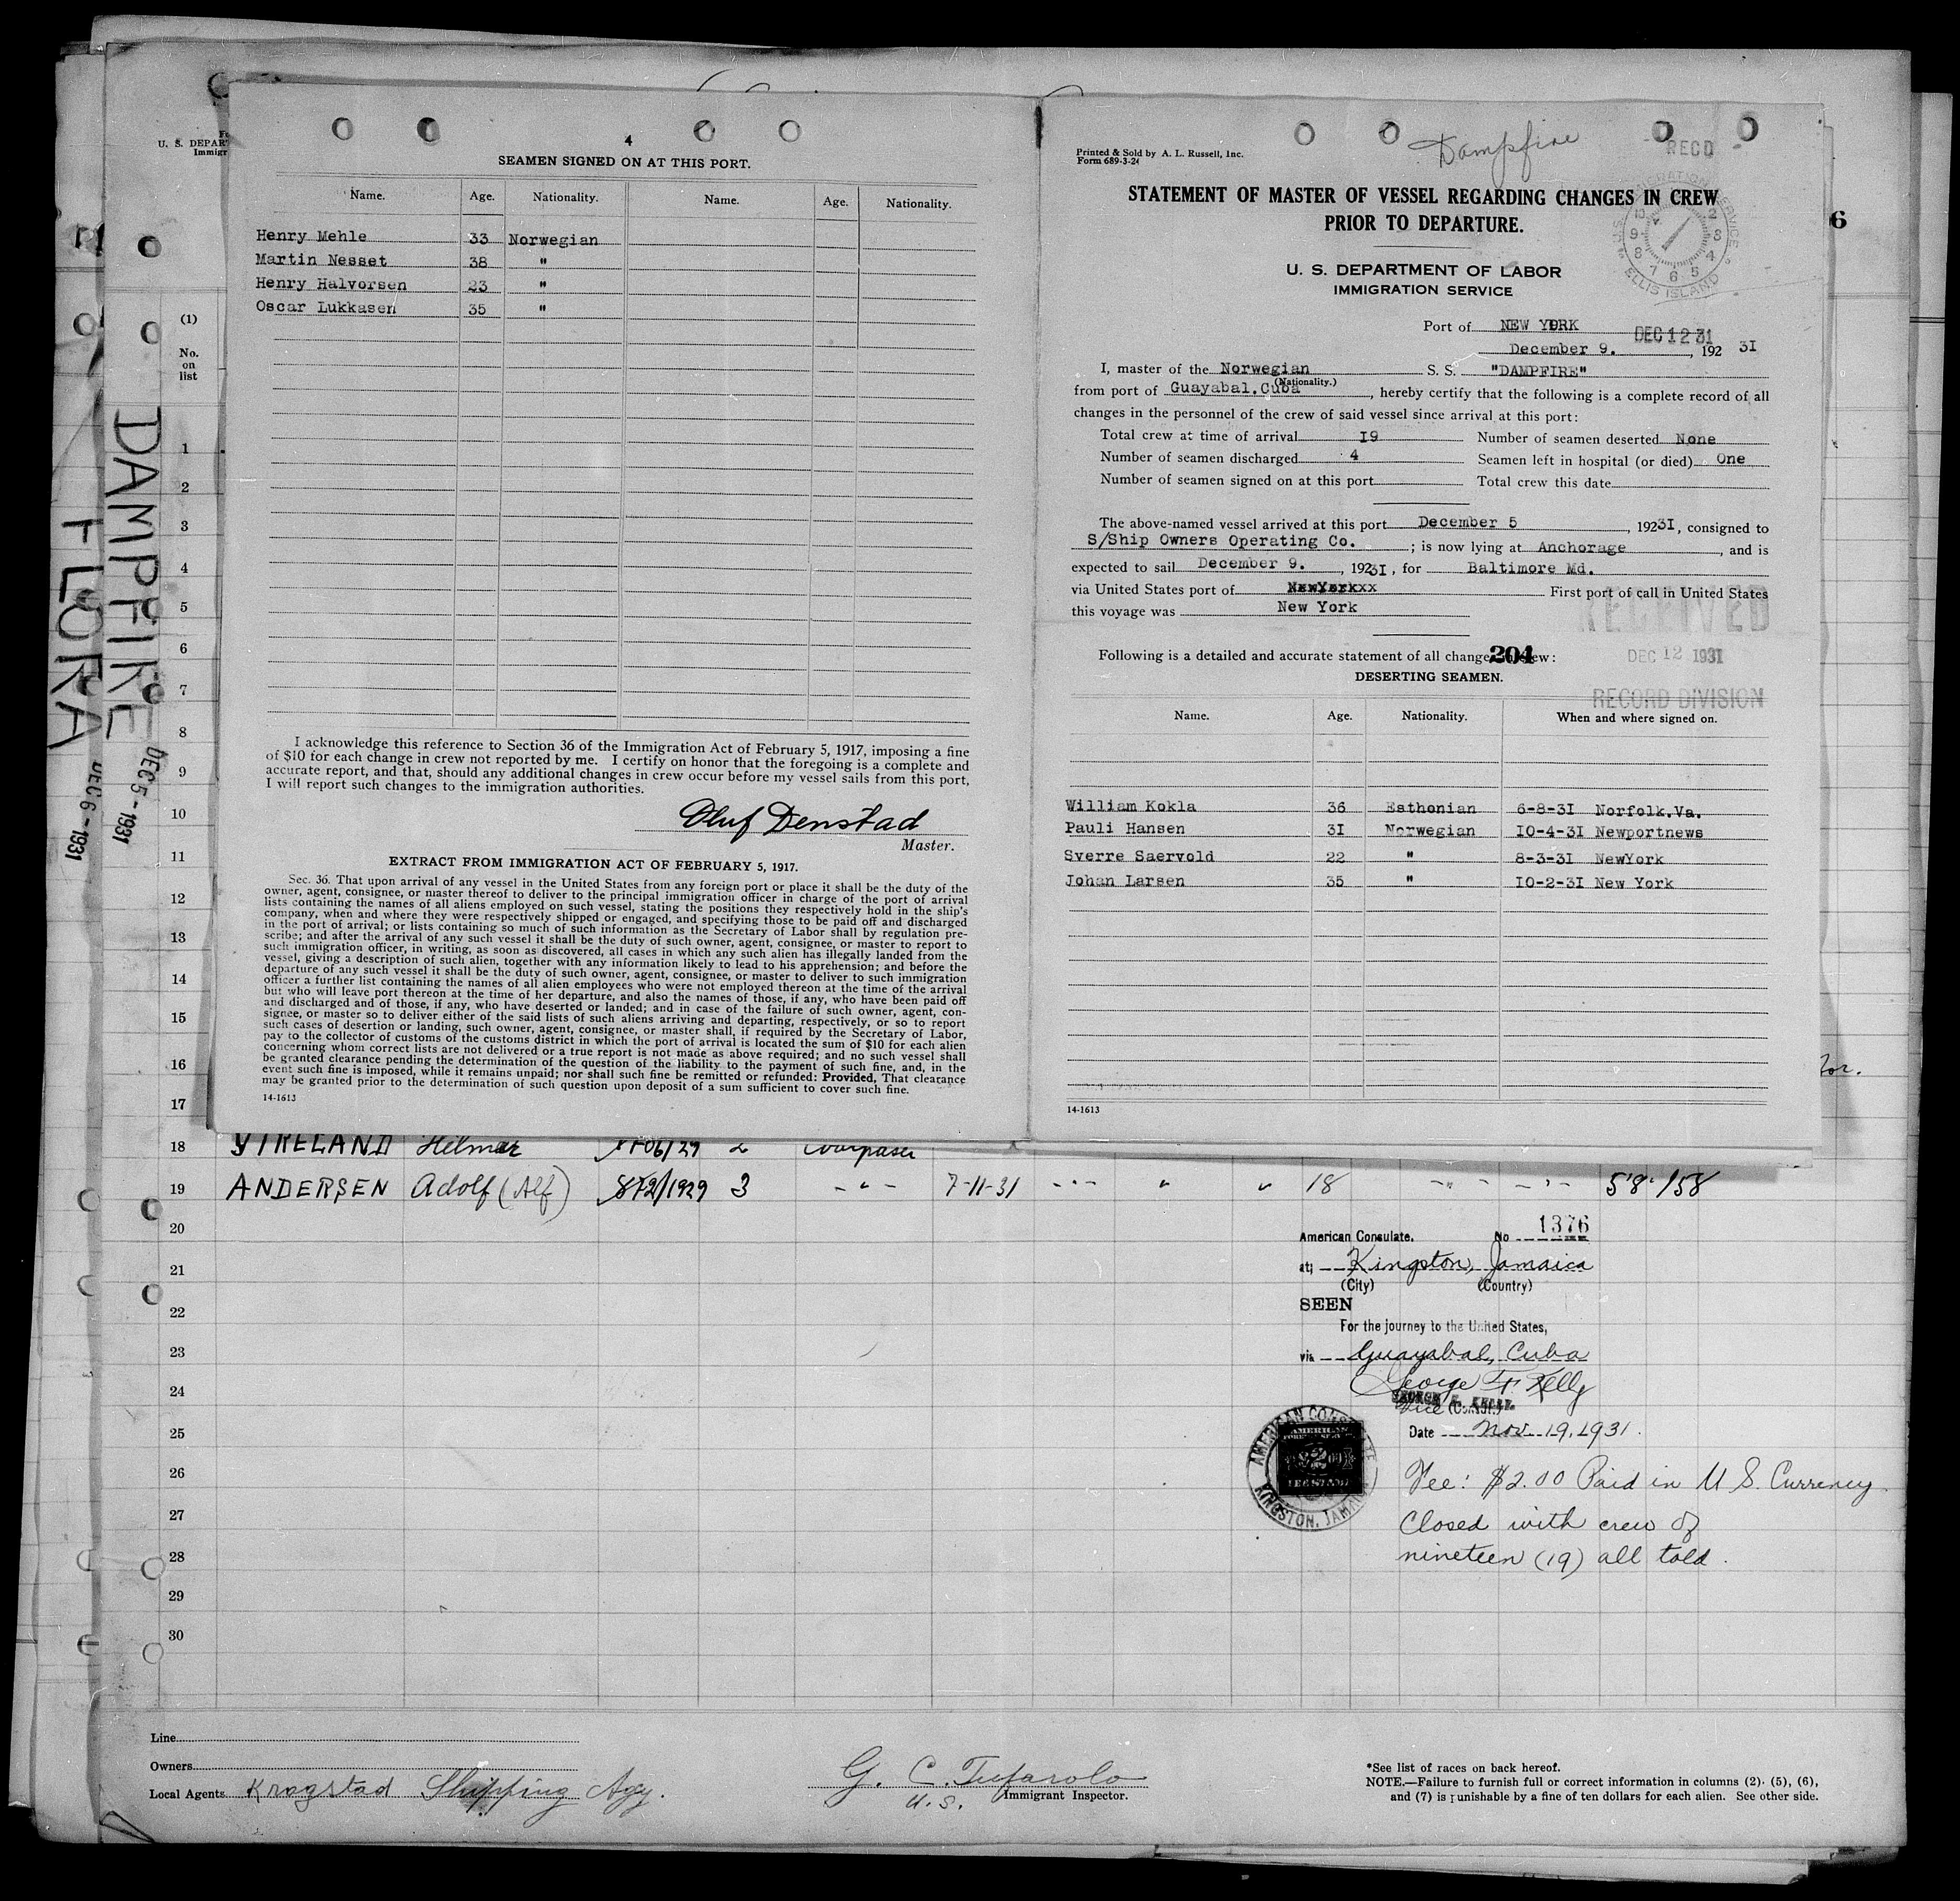 DAMPFIRE
DEC 5 - 1931
FLORA
DEC 6 - 1931
U. S. DEPAR
Immigr
6
(1)
No.
on
list
1
2
3
4
5
6
7
8
9
10
11
12
13
14
15
16
17
4
SEAMEN SIGNED ON AT THIS PORT.
Name. Age. Nationality. Name. Age. Nationality.
Henry Mehle 33 Norwegian
Martin Nesset 38 "
Henry Halvorsen 23 "
Oscar Lukkasen 35 "
I acknowledge this reference to Section 36 of the Immigration Act of February 5, 1917, imposing a fine
of $10 for each change in crew not reported by me. I certify on honor that the foregoing is a complete and
accurate report, and that, should any additional changes in crew occur before my vessel sails from this port,
I will report such changes to the immigration authorities.
Oluf Denstad
Master.
EXTRACT FROM IMMIGRATION ACT OF FEBRUARY 5, 1917.
Sec. 36. That upon arrival of any vessel in the United States from any foreign port or place it shall be the duty of the
owner, agent, consignee, or master thereof to deliver to the principal immigration officer in charge of the port of arrival
lists containing the names of all aliens employed on such vessel, stating the positions they respectively hold in the ship's
company, when and where they were respectively shipped or engaged, and specifying those to be paid off and discharged
in the port of arrival; or lists containing so much of such information as the Secretary of Labor shall by regulation pre-
scribe; and after the arrival of any such vessel it shall be the duty of such owner, agent, consignee, or master to report to
such immigration officer, in writing, as soon as discovered, all cases in which any such alien has illegally landed from the
vessel, giving a description of such alien, together with any information likely to lead to his apprehension; and before the
departure of any such vessel it shall be the duty of such owner, agent, consignee, or master to deliver to such immigration
officer a further list containing the names of all alien employees who were not employed thereon at the time of the arrival
but who will leave port thereon at the time of her departure, and also the names of those, if any, who have been paid off
and discharged and of those, if any, who have deserted or landed; and in case of the failure of such owner, agent, con-
signee, or master so to deliver either of the said lists of such aliens arriving and departing, respectively, or so to report
such cases of desertion or landing, such owner, agent, consignee, or master shall, if required by the Secretary of Labor,
pay to the collector of customs of the customs district in which the port of arrival is located the sum of $10 for each alien
concerning whom correct lists are not delivered or a true report is not made as above required; and no such vessel shall
be granted clearance pending the determination of the question of the liability to the payment of such fine, and, in the
event such fine is imposed, while it remains unpaid; nor shall such fine be remitted or refunded: Provided, That clearance
may be granted prior to the determination of such question upon deposit of a sum sufficient to cover such fine.
14-1613
Printed & Sold by A. L. Russell, Inc.
Form 689-3-24
Dampfire
RECD
ELLIS ISLAND
STATEMENT OF MASTER OF VESSEL REGARDING CHANGES IN CREW
PRIOR TO DEPARTURE.
U. S. DEPARTMENT OF LABOR
IMMIGRATION SERVICE
Port of NEW YORK DEC 12 31
December 9. , 192 31
I, master of the Norwegian S. S. "DAMPFIRE"
(Nationality.)
from port of Guayabal.Cuba , hereby certify that the following is a complete record of all
changes in the personnel of the crew of said vessel since arrival at this port:
Total crew at time of arrival 19 Number of seamen deserted None
Number of seamen discharged 4 Seamen left in hospital (or died) One
Number of seamen signed on at this port Total crew this date
The above-named vessel arrived at this port December 5 , 19231, consigned to
S/Ship Owners Operating Co. ; is now lying at Anchorage , and is
expected to sail December 9. , 19231, for Baltimore Md.
via United States port of NewYorkxx First port of call in United States
this voyage was New York
RECEIVED
DEC 12 1931
RECORD DIVISION
Following is a detailed and accurate statement of all change 204 ew:
DESERTING SEAMEN.
Name. Age. Nationality. When and where signed on.
William Kokla 36 Esthonian 6-8-31 Norfolk.Va.
Pauli Hansen 31 Norwegian 10-4-31 Newportnews
Sverre Saervold 22 " 8-3-31 NewYork
Johan Larsen 35 " 10-2-31 New York
14-1613
18 Helmer 2
19 ANDERSEN Adolf (Alf) 8/2/1929 3 - " - 7-11-31 - " - " " 18 - " - - " - 5'8" 158
20
21
22
23
24
25
26
27
28
29
30
American Consulate. No 1376
at; Kingston, Jamaica
(City) (Country)
SEEN
For the journey to the United States,
via Guayabal, Cuba
George F. Kelly
GEORGE F. KELLY
Vice (Consul.)
Date Nov. 19, 1931.
AMERICAN CONSULATE
KINGSTON, JAMAICA
AMERICAN
FOREIGN SERVICE
$2.00
Fee: $2.00 Paid in U S. Currency.
Closed with crew of
nineteen (19) all told.
Line
Owners
Local Agents Kragstad Shipping Agy.
G. C. Tufarolo
U.S. Immigrant Inspector.
*See list of races on back hereof.
NOTE.—Failure to furnish full or correct information in columns (2), (5), (6),
and (7) is punishable by a fine of ten dollars for each alien. See other side.